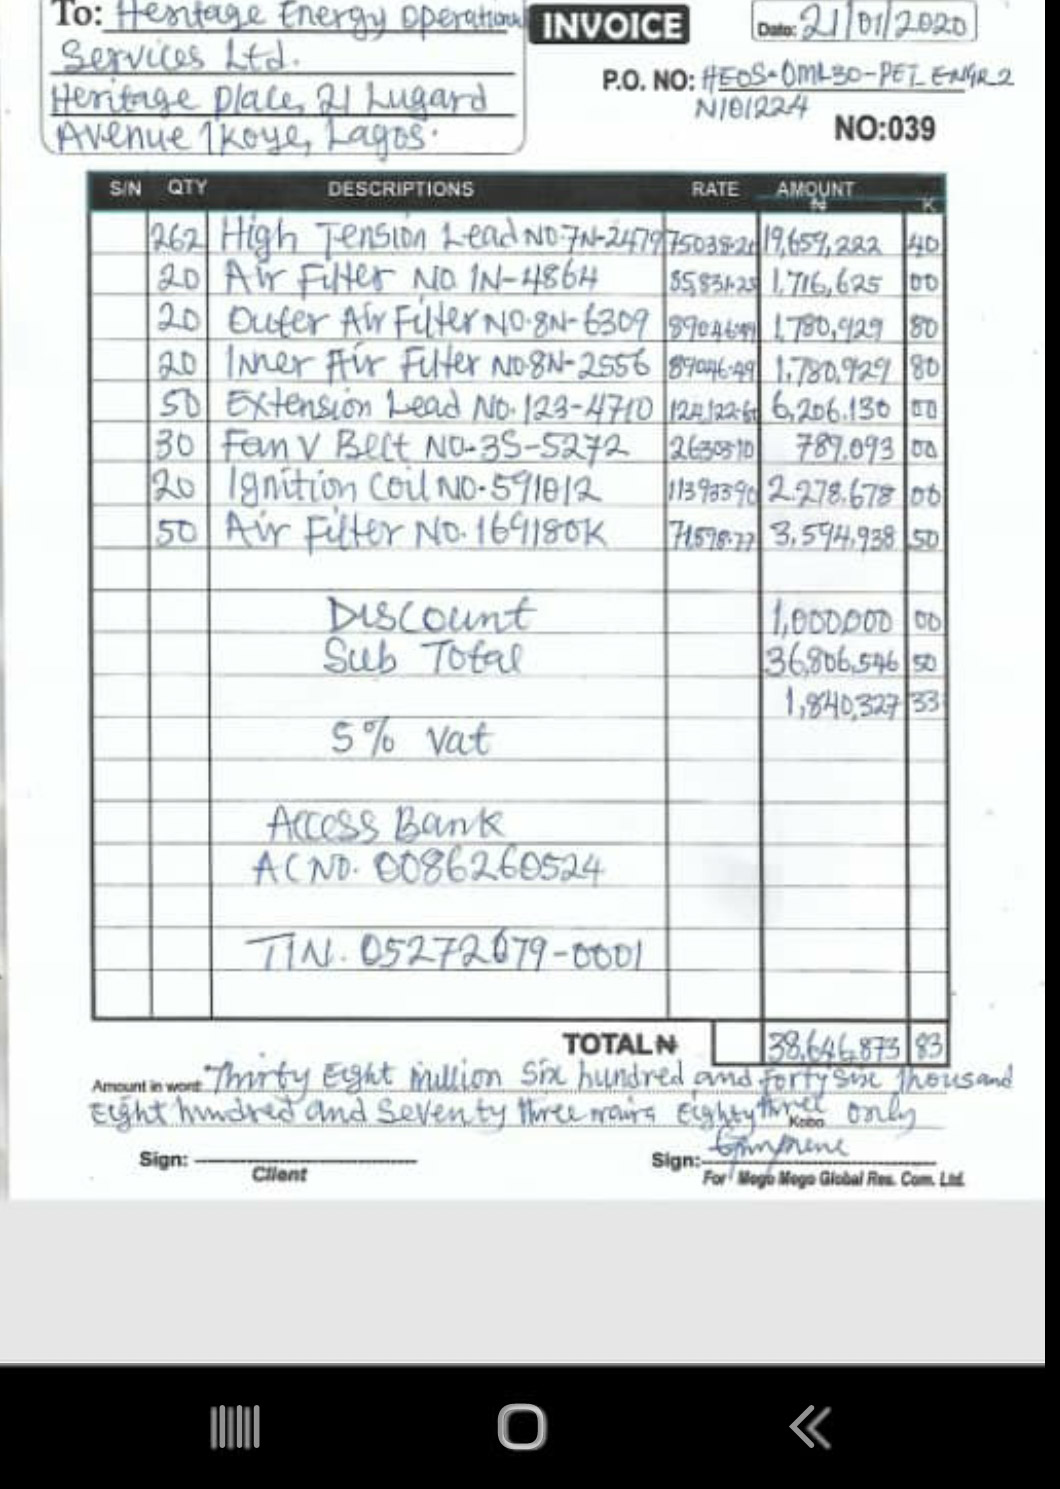 To: Heritage Energy Operational
Services Ltd.
Heritage place, 21 Lugard
Avenue Ikoye, Lagos.
INVOICE
Date: 21/01/2020
P.O. NO: HEOS-OML30-PET_ENGR2
N/01224
NO:039
S/N QTY DESCRIPTIONS RATE AMOUNT
₦ K
262 High Tension Lead NO.7N-2479 75038.20 19,659,222 40
20 Air Filter NO. 1N-4864 85,831.25 1,716,625 00
20 Outer Air Filter NO.8N-6309 89046.49 1,780,929 80
20 Inner Air Filter NO.8N-2556 89046.49 1,780,929 80
50 Extension Lead NO. 123-4710 124,122.60 6,206.130 00
30 Fan V Belt NO.3S-5272 26303.10 789.093 00
20 Ignition Coil NO.591012 113933.90 2.278.678 00
50 Air Filter NO. 169180K 3,594,938 50
Discount 1,000,000 00
Sub Total 36,806,546 50
1,840,327 33
5% Vat
Access Bank
AC NO. 0086260524
TIN. 05272679-0001
TOTAL ₦ 38,646,873 83
Amount in word: Thirty Eight million Six hundred and forty Six Thousand
Eight hundred and Seventy three naira Eighty three Kobo only
Sign: Client
Sign: For Mogo Mogo Global Res. Com. Ltd.